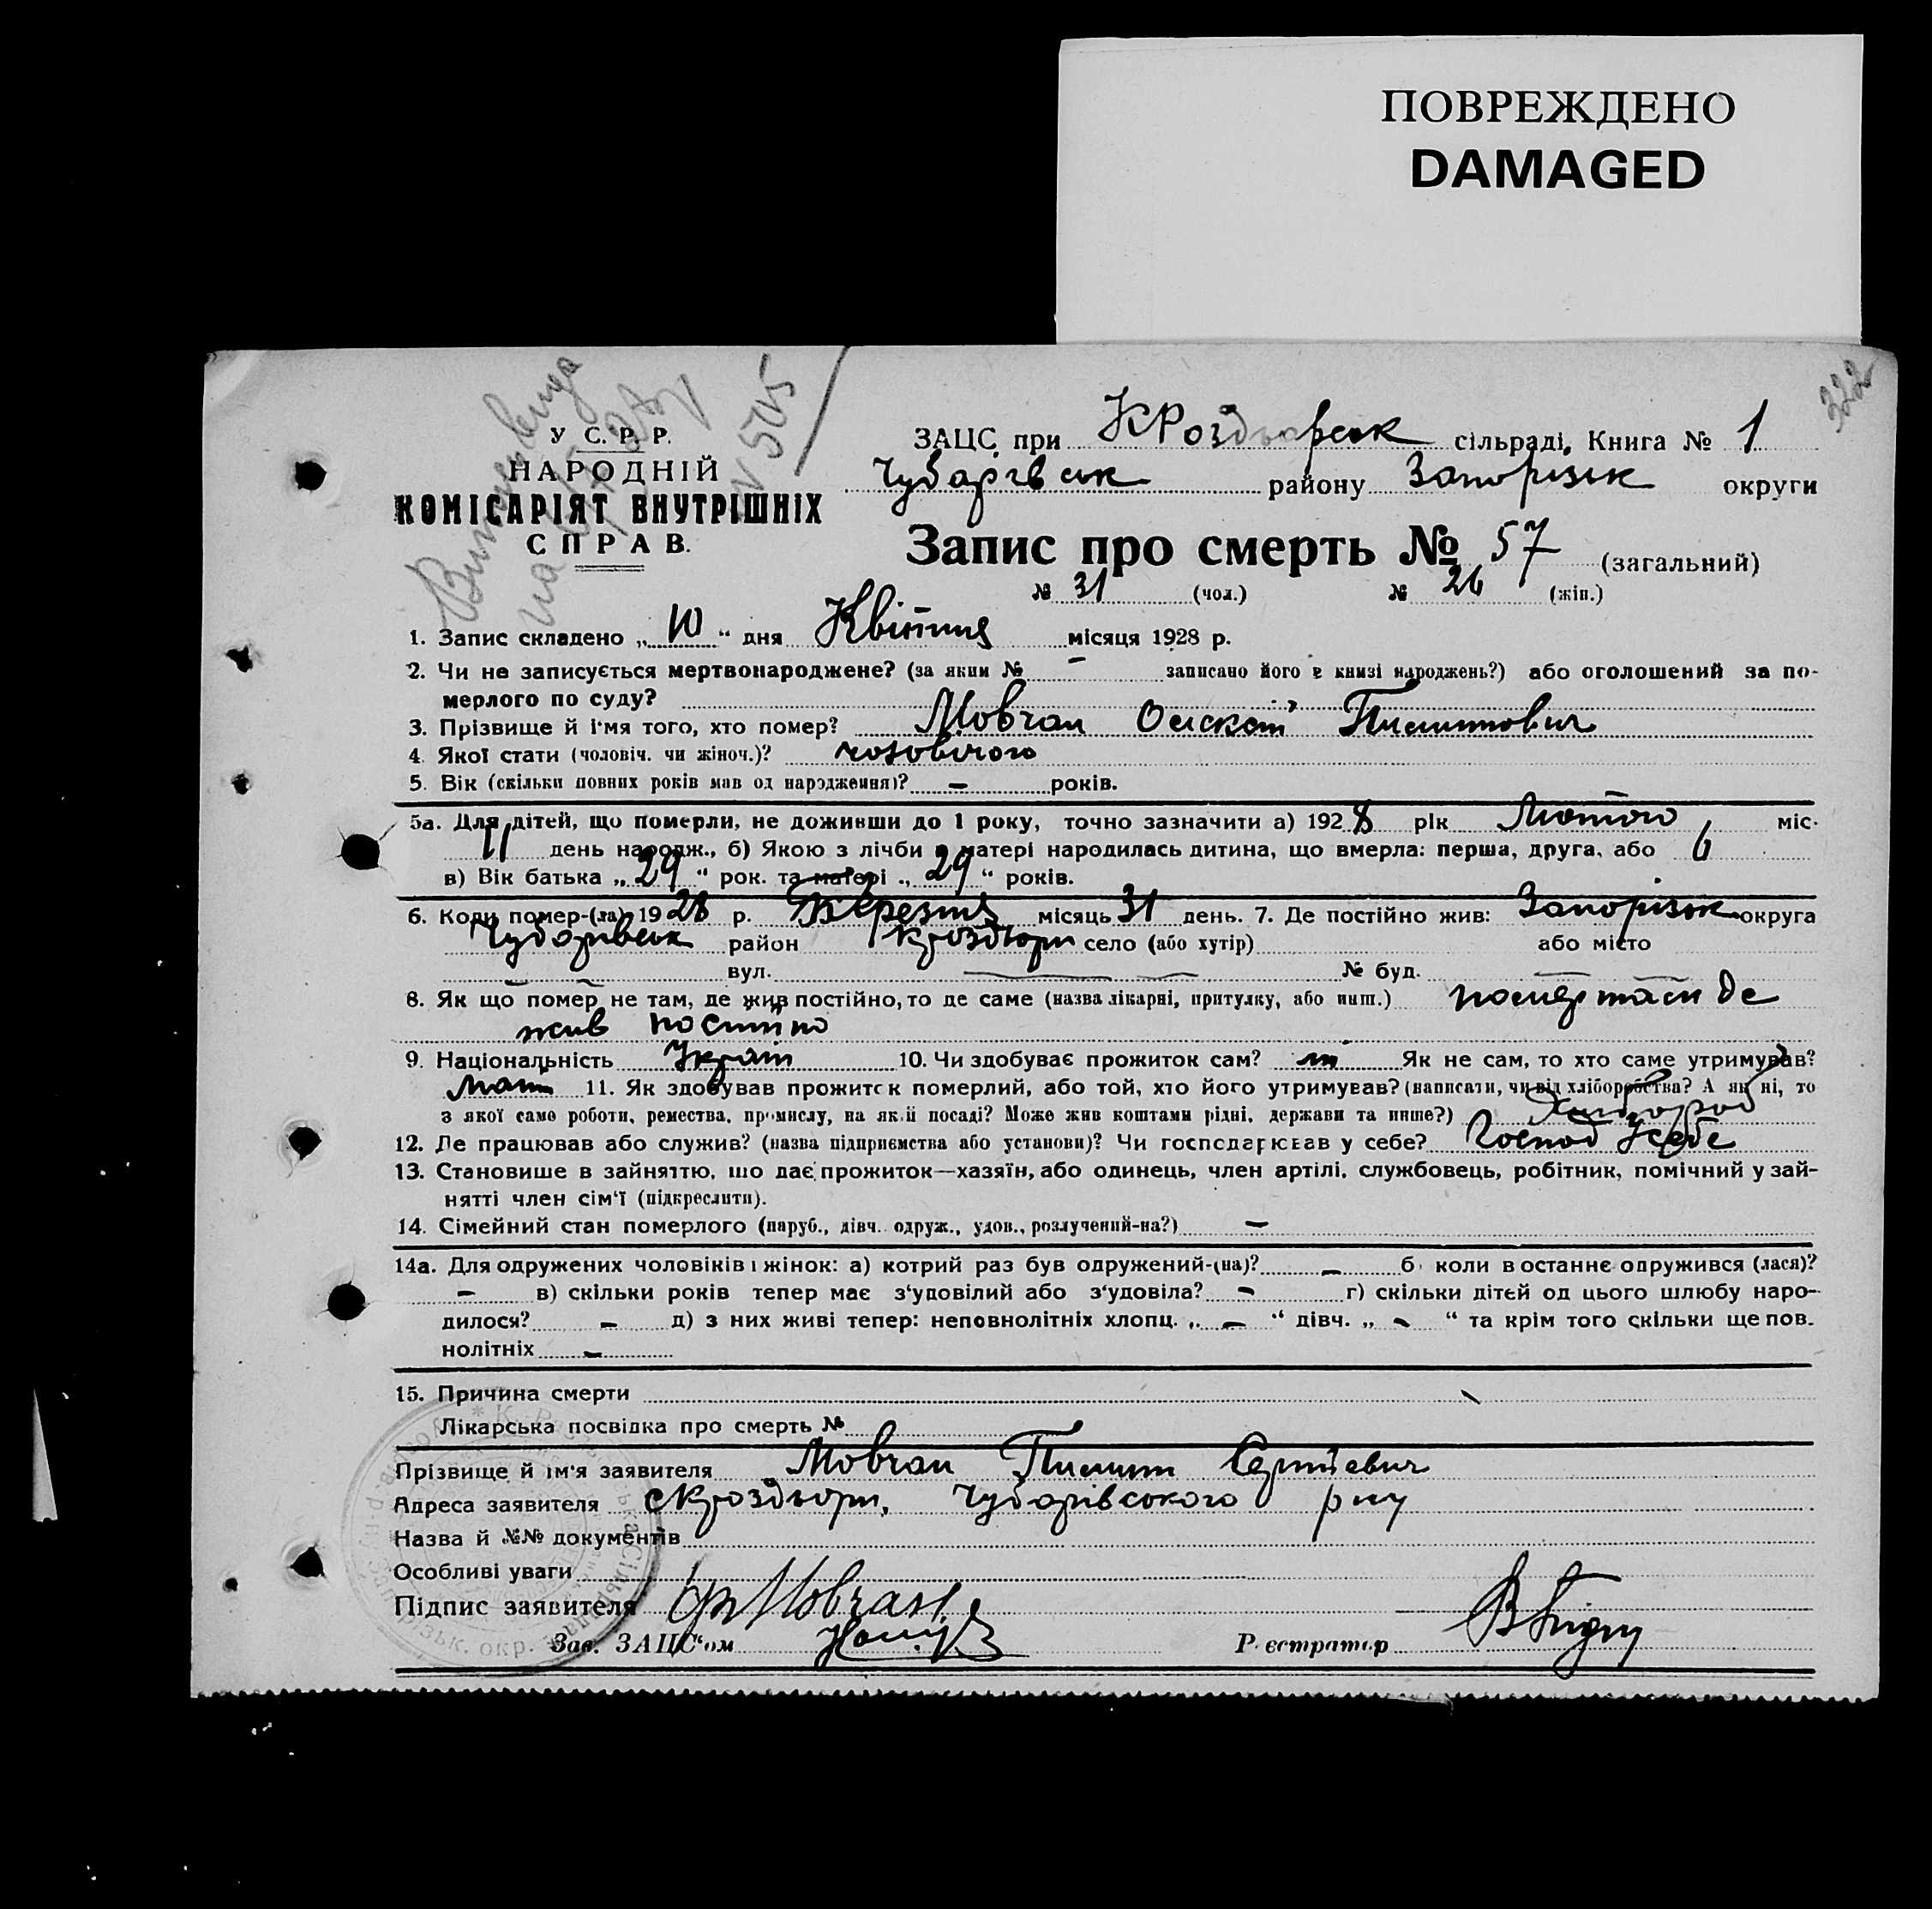 ПОВРЕЖДЕНО
DAMAGED
322
У С. Р. Р.
НАРОДНІЙ
КОМІСАРІЯТ ВНУТРІШНІХ
СПРАВ.
N 505
ЗАЦС при сільраді, Книга № 1
Чубарівськ району Запорізьк округи
Запис про смерть № 57 (загальний)
№ 31 (чол.) № 26 (жін.)
1. Запис складено „ 10 “ дня Квітня місяця 1928 р.
2. Чи не записується мертвонароджене? (за яким № – записано його в книзі народжень?) або оголошений за по-
мерлого по суду?
3. Прізвище й ім'я того, хто помер? Мовчан
4. Якої стати (чоловіч. чи жіноч.)? чоловічого
5. Вік (скільки повних років мав од народження)? – років.
5а. Для дітей, що померли, не доживши до 1 року, точно зазначити а) 1928 рік Лютого міс.
11 день народж., б) Якою з лічби в матері народилась дитина, що вмерла: перша, друга, або 6
в) Вік батька „ 29 “ рок. та матері „ 29 “ років.
6. Коли помер-(ла) 1928 р. Березня місяць 31 день. 7. Де постійно жив: Запорізьк округа
Чубарівськ район село (або хутір) або місто
вул. № буд.
8. Як що помер не там, де жив постійно, то де саме (назва лікарні, притулку, або инш.) помер там де
жив постійно
9. Національність Україн 10. Чи здобуває прожиток сам? ні Як не сам, то хто саме утримував?
мати 11. Як здобував прожиток померлий, або той, хто його утримував? (написати, чи від хліборобства? А як ні, то
з якої само роботи, ремества, промислу, на якій посаді? Може жив коштами рідні, держави та инше?) Хлібороб
12. Де працював або служив? (назва підприємства або установи)? Чи господарював у себе? Господ у себе
13. Становище в зайняттю, що дає прожиток—хазяїн, або одинець, член артілі, службовець, робітник, помічний у зай-
нятті член сім'ї (підкреслити).
14. Сімейний стан померлого (паруб., дівч. одруж., удов., розлучений-на?) –
14а. Для одружених чоловіків і жінок: а) котрий раз був одружений-(на)? – б) коли в останнє одружився (лася)?
– в) скільки років тепер має з'удовілий або з'удовіла? – г) скільки дітей од цього шлюбу наро-
дилося? – д) з них живі тепер: неповнолітніх хлопц. „ – “ дівч. „ – “ та крім того скільки ще пов-
нолітніх –
15. Причина смерти
Лікарська посвідка про смерть №
Прізвище й ім'я заявителя Мовчан
Адреса заявителя Чубарівського р-ну
Назва й №№ документів
Особливі уваги
Підпис заявителя Мовчан
Зав. ЗАЦС'ом
Реєстратор